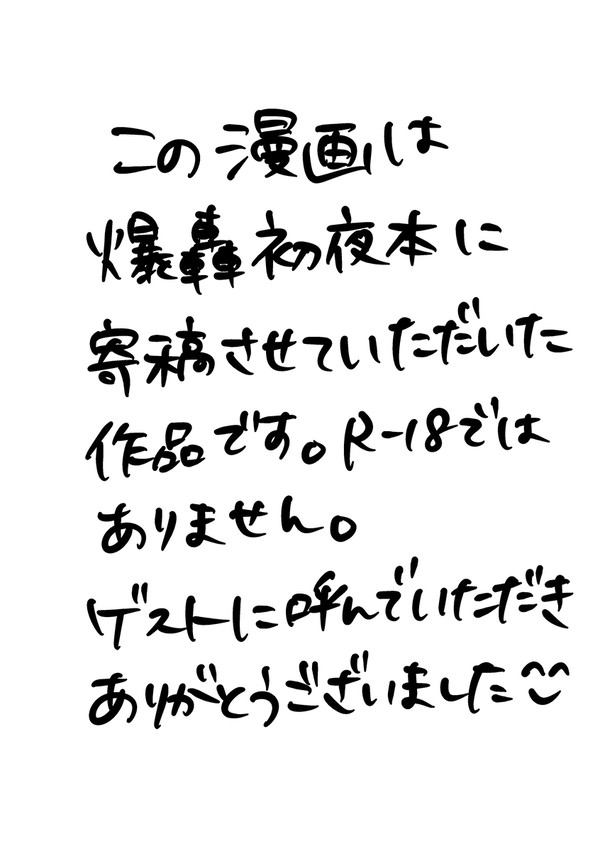 この漫画は
爆轟初夜本に
寄稿させていただいた
作品です。R-18では
ありません。
ゲストに呼んでいただき
ありがとうございました^^